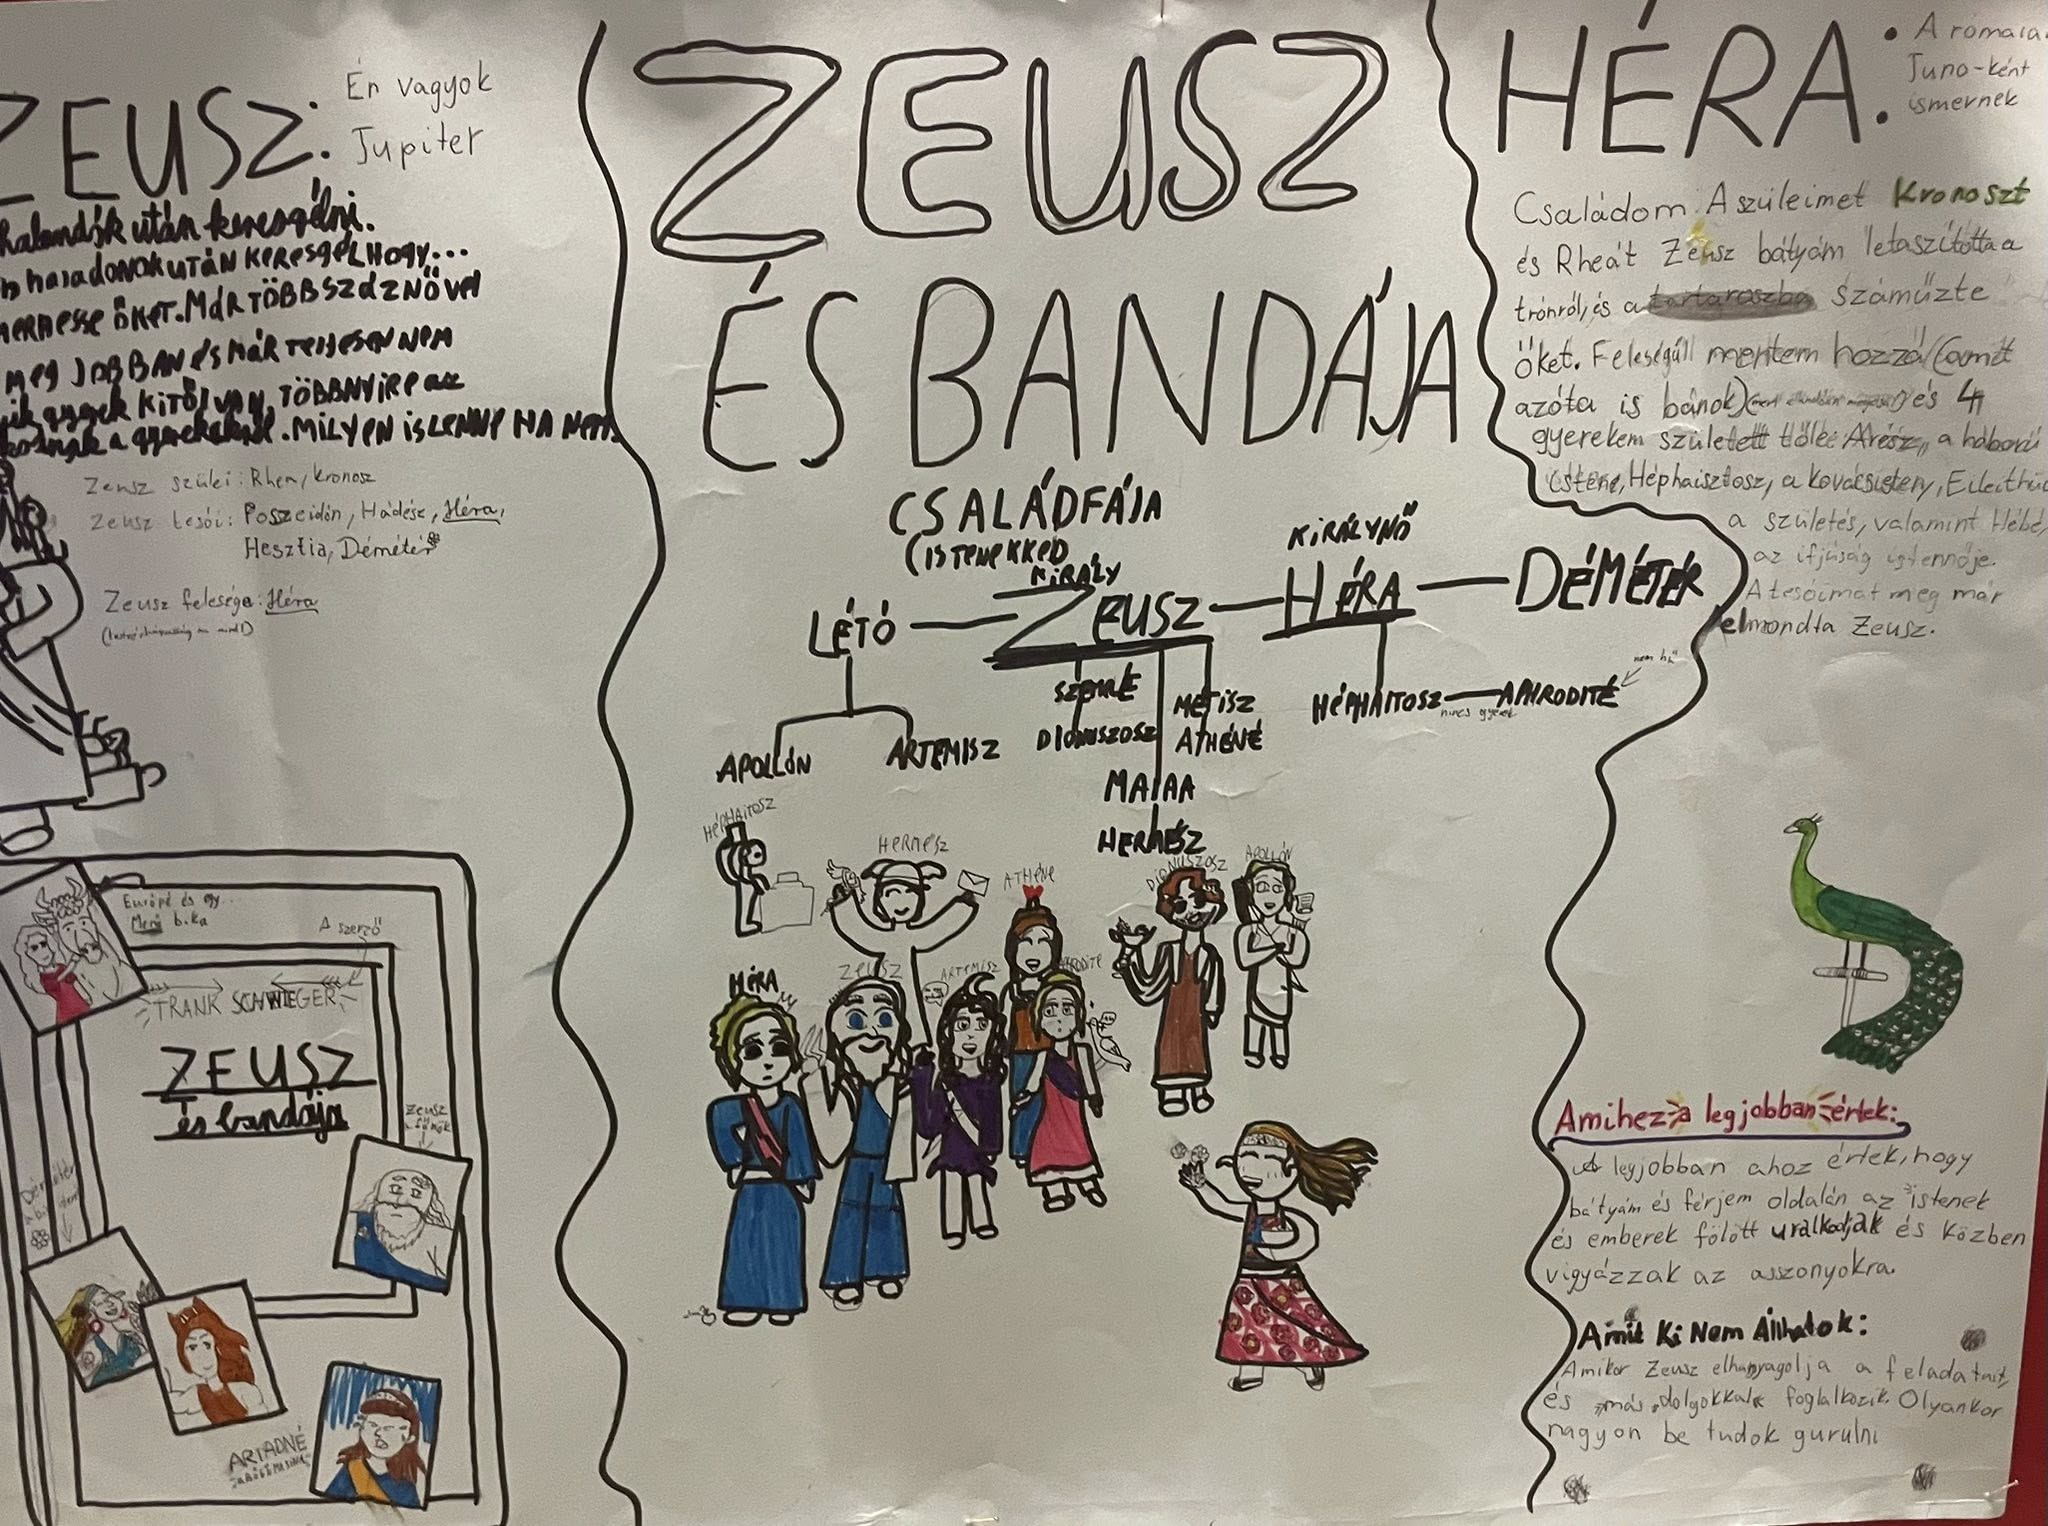 ZEUSZ:
Én vagyok
Jupiter
kalandok után keresgélni.
után keresgél, hogy...
őket. Már több száz nővel
meg jobban és már teljesen nem
gyerek kitől van, többnyire az
a gyerekekre. Milyen is lenne ha nem
Zeusz szülei: Rhea, Kronosz
Zeusz tesói: Poszeidón, Hádész, Héra,
Hesztia, Démétér
Zeusz felesége: Héra
Európé és egy...
Menő bika
A szerző
TRANK SCHWIEGER
ZEUSZ
és bandája
Zeusz
a főnök
Démétér
ARIADNÉ
ZEUSZ
ÉS BANDÁJA
CSALÁDFÁJA
(ISTENEKKED
KIRÁLY
KIRÁLYNŐ
LÉTÓ
ZEUSZ
HÉRA
DÉMÉTÉR
SZEMELÉ
METISZ
HÉPHAITOSZ
nincs gyerek
APHRODITÉ
nem hű
APOLLÓN
ARTEMISZ
DIONUSZOSZ
ATHÉNÉ
MAIAA
HERMÉSZ
HÉPHAITOSZ
HERMÉSZ
ATHÉNÉ
DIONUSZOSZ
APOLLÓN
HÉRA
ZEUSZ
ARTEMISZ
HÉRA:
• A rómaia
Juno-ként
ismernek
Családom: A szüleimet Kronoszt
és Rheát Zeusz bátyám letaszította a
trónról, és a tartaroszba száműzte
őket. Feleségűll mentem hozzá (amit
azóta is bánok) és 4
gyerekem született tőle: Arész, a háború
istene, Héphaisztosz, a kovácsisten, Eileithüi
a születés, valamint Hébé,
az ifjúság istennője.
A tesóimat meg már
elmondta Zeusz.
Amihez a legjobban értek:
A legjobban ahoz értek, hogy
bátyám és férjem oldalán az istenek
és emberek fölött uralkodjak és közben
vigyázzak az asszonyokra.
Amit Ki Nem Állhatok:
Amikor Zeusz elhanyagolja a feladatait,
és „más dolgokkal” foglalkozik. Olyankor
nagyon be tudok gurulni